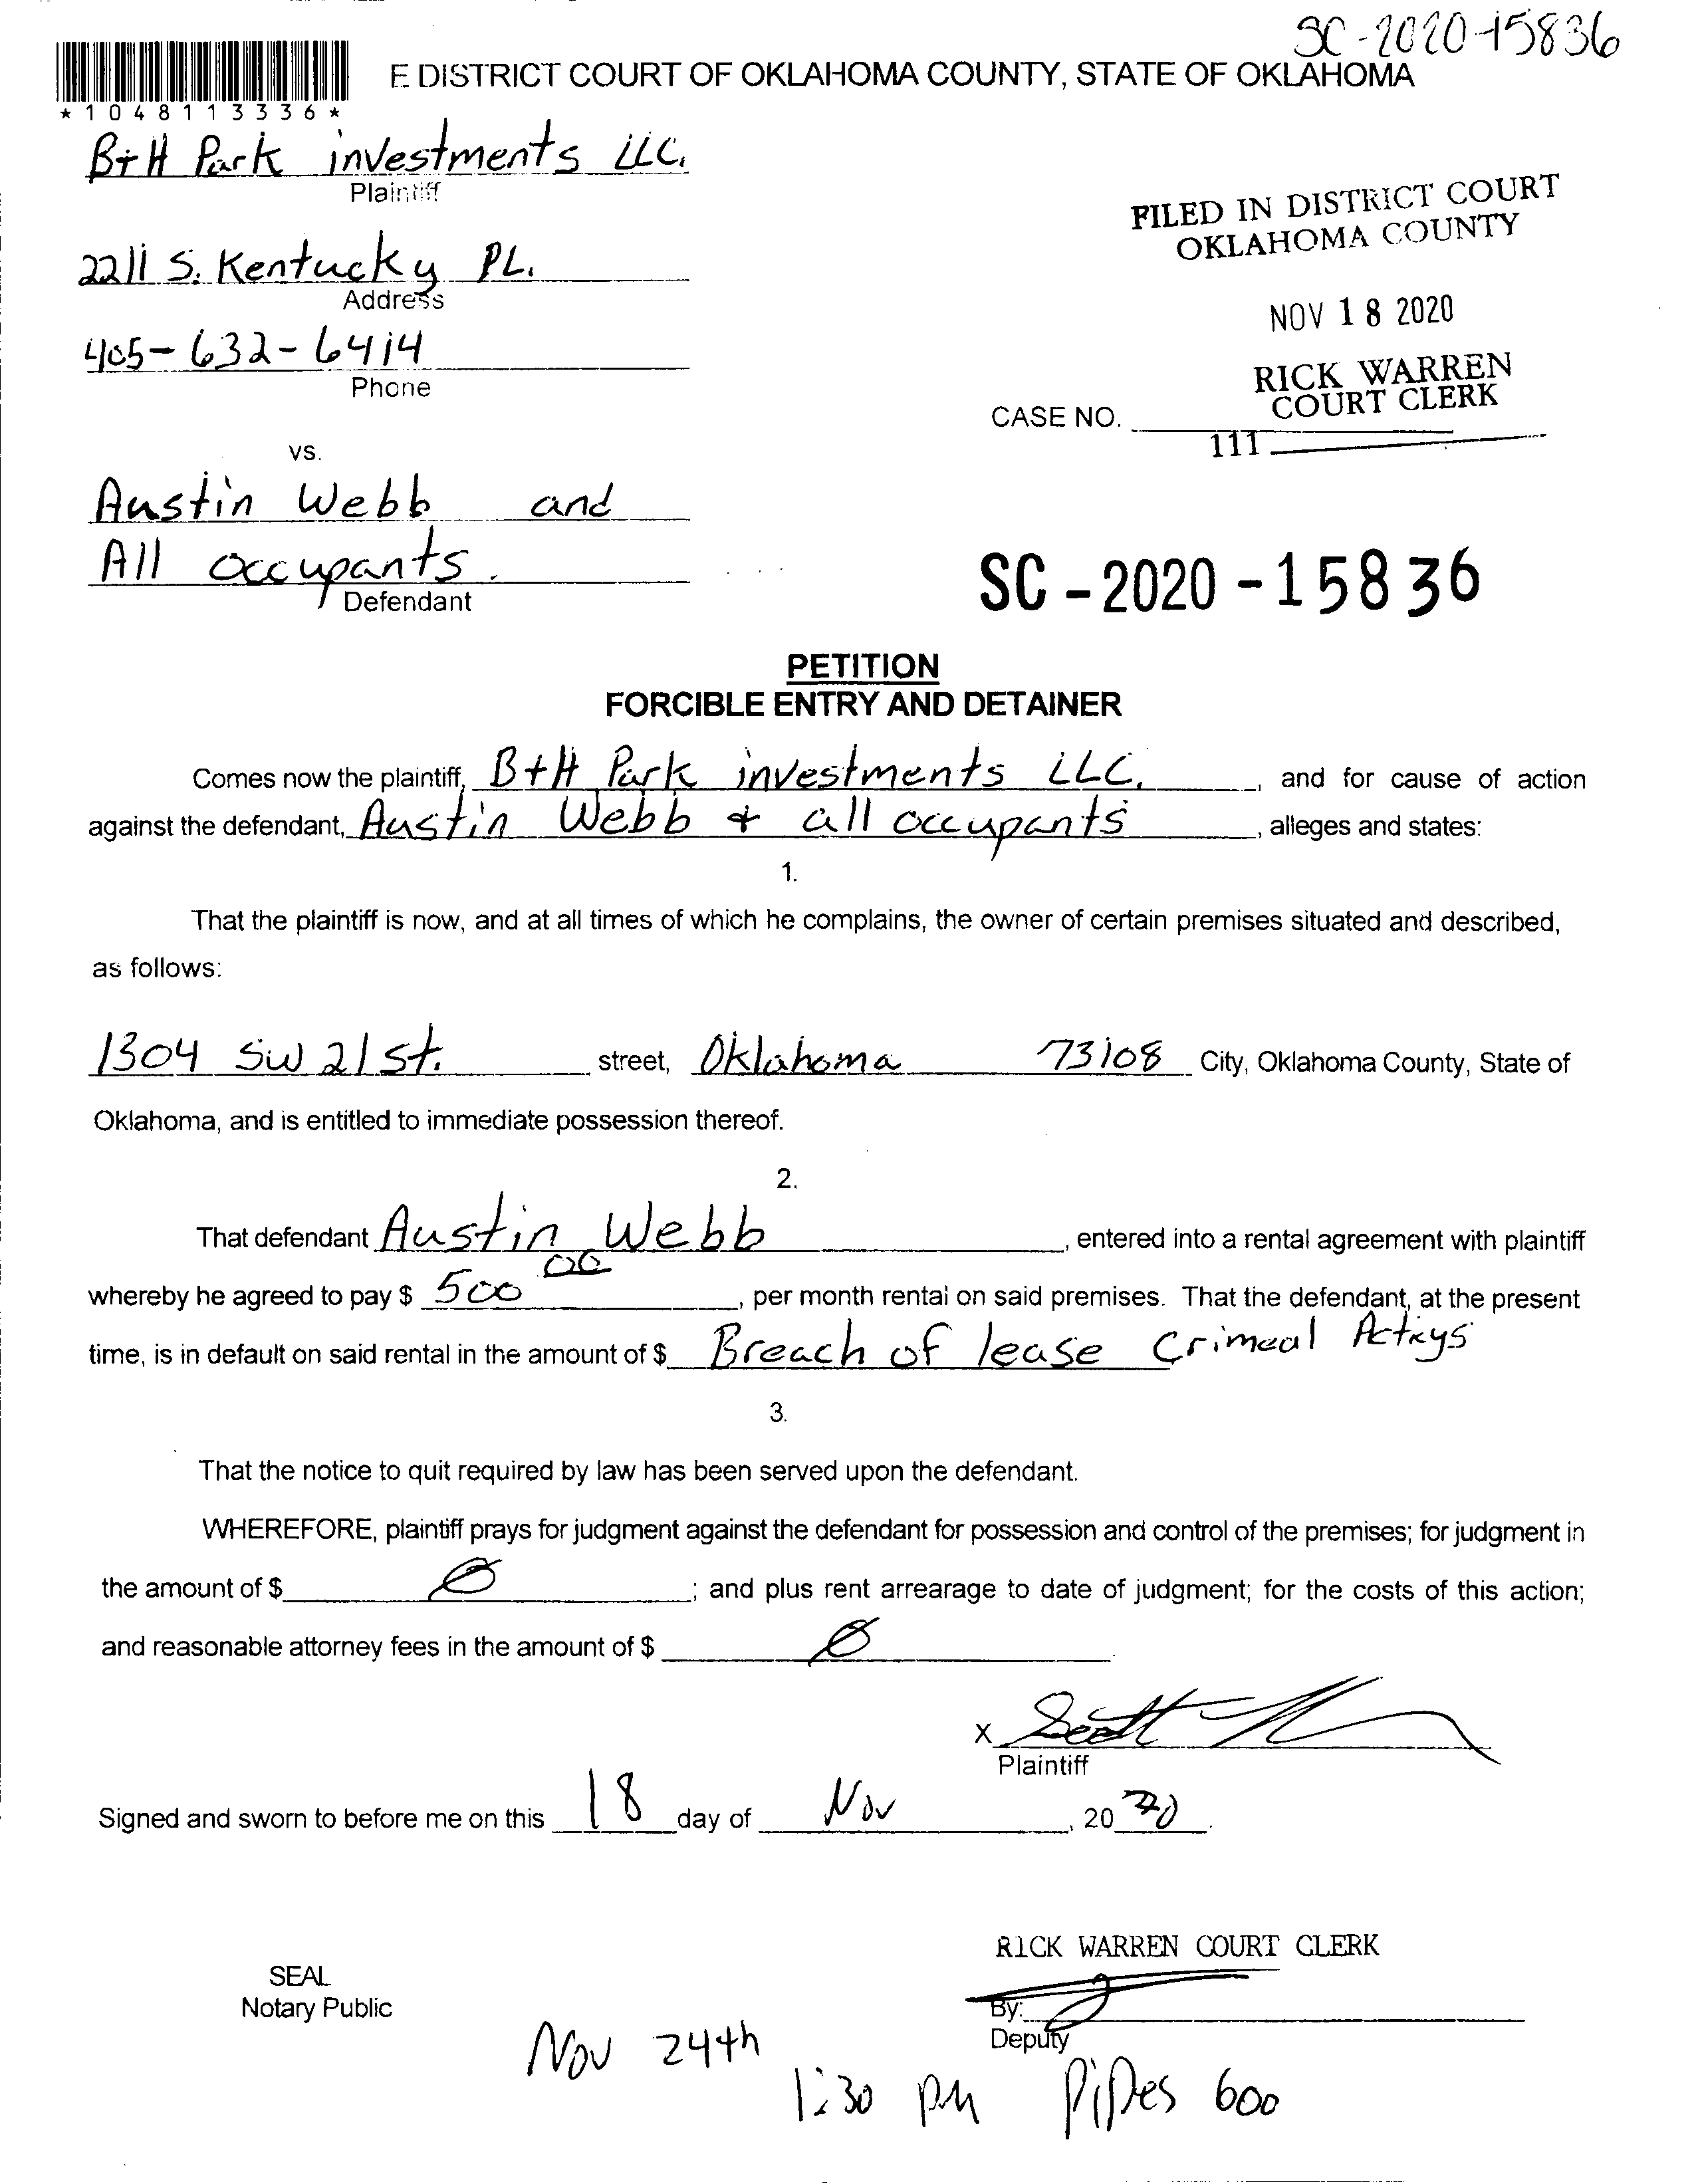 SC-2020-15836
E DISTRICT COURT OF OKLAHOMA COUNTY, STATE OF OKLAHOMA
*1048113336*
B+H Park investments LLC.
Plaintiff
FILED IN DISTRICT COURT
OKLAHOMA COUNTY
2211 S. Kentucky PL.
Address
NOV 18 2020
405-632-6414
Phone
RICK WARREN
COURT CLERK
CASE NO.
111
vs.
Austin Webb and
All occupants.
Defendant
SC-2020-15836
PETITION
FORCIBLE ENTRY AND DETAINER
Comes now the plaintiff, B+H Park investments LLC. , and for cause of action
against the defendant, Austin Webb + all occupants , alleges and states:
1.
That the plaintiff is now, and at all times of which he complains, the owner of certain premises situated and described,
as follows:
1304 SW 21 st. street, Oklahoma 73108 City, Oklahoma County, State of
Oklahoma, and is entitled to immediate possession thereof.
2.
That defendant Austin Webb , entered into a rental agreement with plaintiff
whereby he agreed to pay $ 500 00 , per month rental on said premises. That the defendant, at the present
time, is in default on said rental in the amount of $ Breach of lease
3.
That the notice to quit required by law has been served upon the defendant.
WHEREFORE, plaintiff prays for judgment against the defendant for possession and control of the premises; for judgment in
the amount of $ Ø ; and plus rent arrearage to date of judgment; for the costs of this action;
and reasonable attorney fees in the amount of $ Ø .
X Scott
Plaintiff
Signed and sworn to before me on this 18 day of Nov , 20 20 .
RICK WARREN COURT CLERK
SEAL
Notary Public
By:
Deputy
Nov 24th
1:30 PM Pipes 600